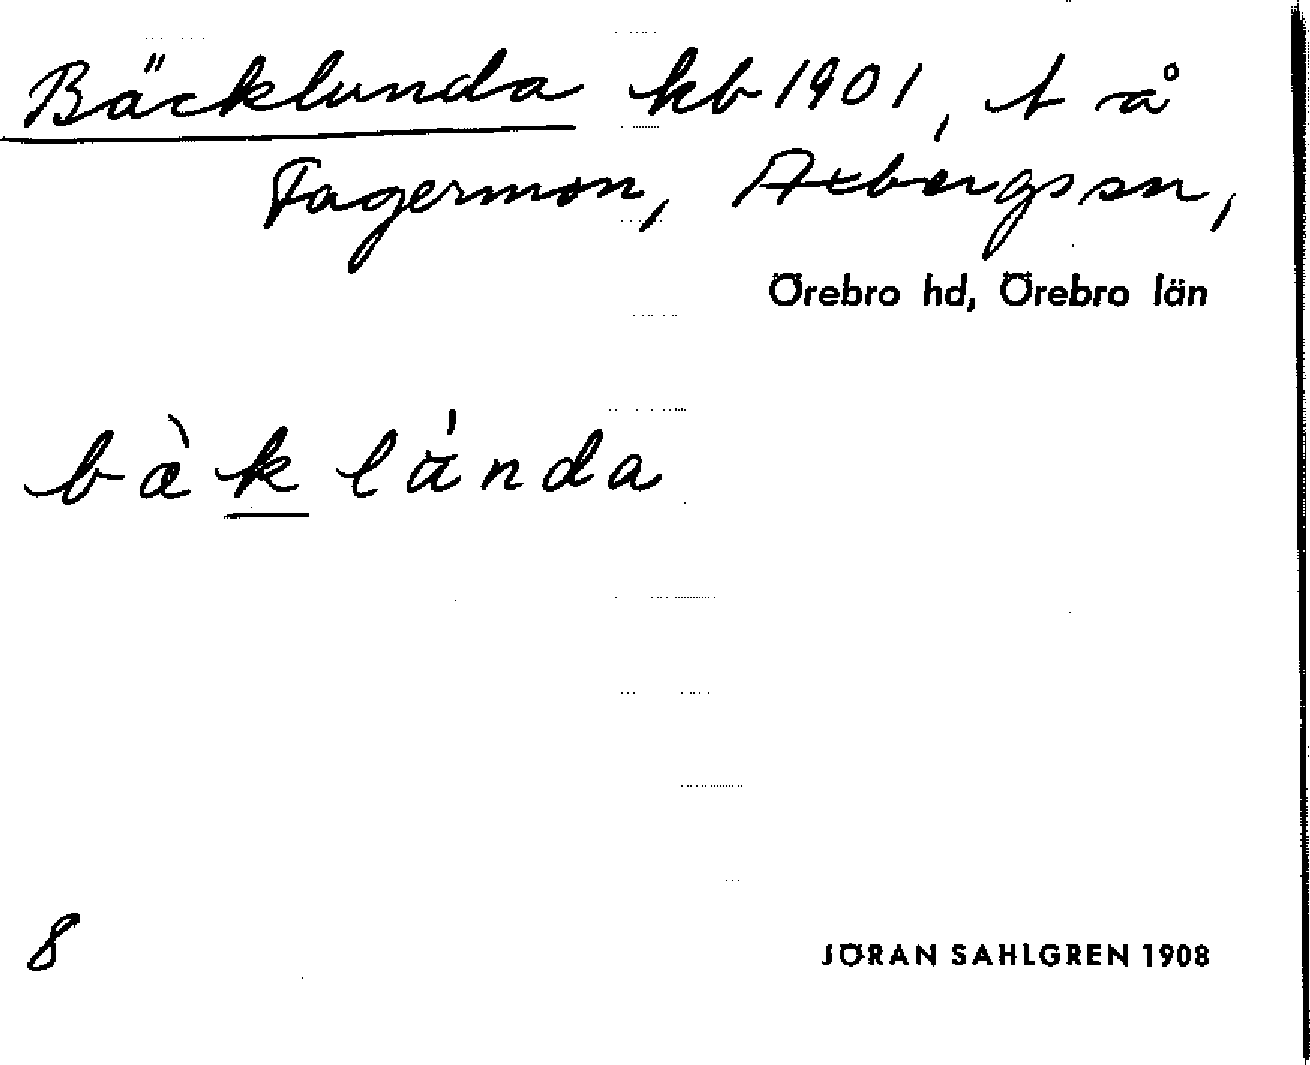 Bäcklunda kb 1901, t å
Fagermon, Axbergs sn,
Örebro hd, Örebro län
bæ̀k lánda
8
JÖRAN SAHLGREN 1908